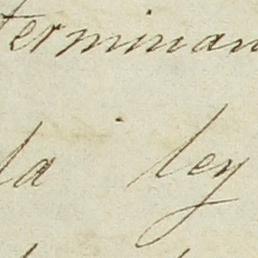 terminan
la ley